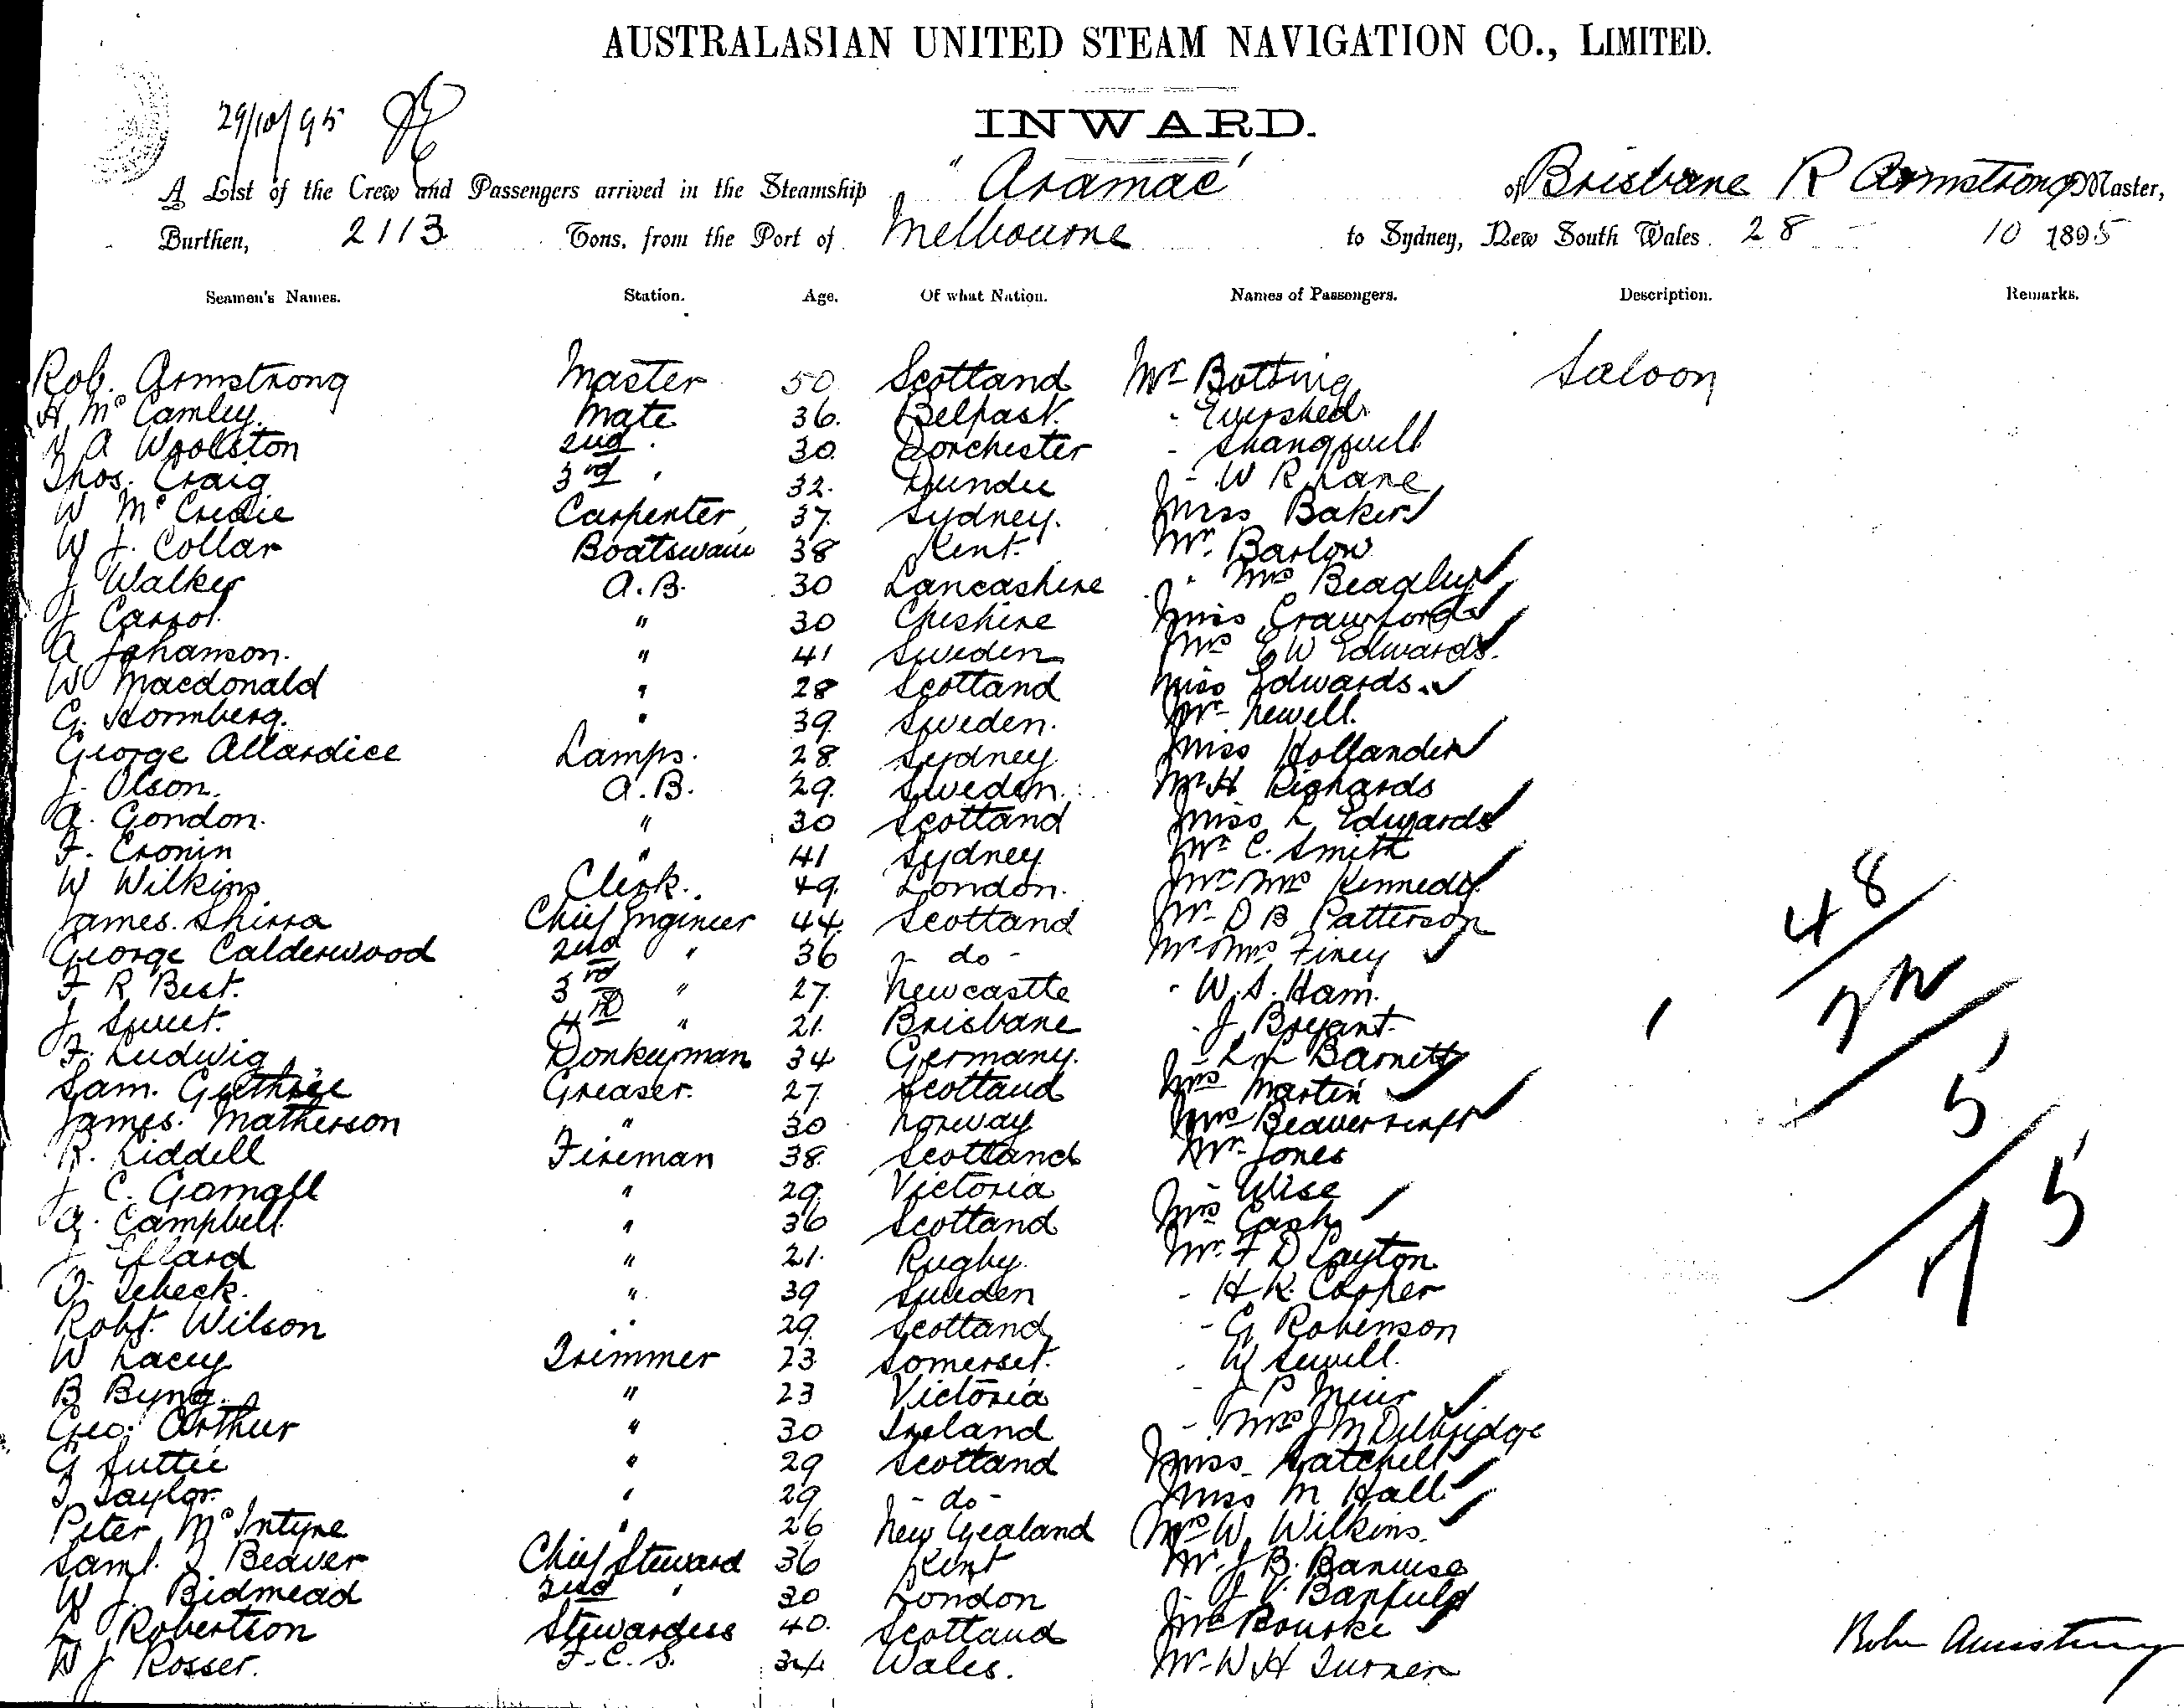 AUSTRALASIAN UNITED STEAM NAVIGATION CO., LIMITED.
29/10/95
INWARD.
A List of the Crew and Passengers arrived in the Steamship "Aramac" of Brisbane R Armstrong Master,
Burthen, 2113 Tons, from the Port of Melbourne to Sydney, New South Wales 28 - 10 1895
Seamen's Names. Station. Age. Of what Nation. Names of Passengers. Description. Remarks.
Rob. Armstrong Master 50 Scotland Mr Botting Saloon
H Mc Camley. Mate 36. Belfast. - Evershed
A Woolston 2nd . 30. Dorchester -
Thos. Craig 3rd . 32. Dundee - W R Lane
W Mc Credie Carpenter 37. Sydney. Miss Baker
W J. Collar Boatswain 38 Kent. Mr. Barlow
J Walker A.B. 30 Lancashire " Mrs Beagley
J Carrol. " 30 Cheshire Miss Crawford
A Johanson. " 41 Sweden Mrs E W Edwards.
W Macdonald " 28 Scotland Miss Edwards.
G. Stormberg. " 39. Sweden. Mr Newell.
George Allardice Lamps. 28. Sydney Miss Hollander
J. Olson. A.B. 29. Sweden. Mr H Richards
A. Gordon. " 30 Scotland Miss L Edwards
F. Cronin " 41 Sydney Mr C. Smith
W Wilkins Clerk. 49. London. Mr Mrs Kennedy
James. Shirra Chief Engineer 44. Scotland Mr D B Patterson
George Calderwood 2nd " 36 - do - Mr Mrs Finey
F R Best. 3rd " 27. Newcastle - W. S. Ham.
J Sweet. 4th " 21. Brisbane - J Bryant.
F. Ludwig Donkeyman 34 Germany. - Barnett
Sam. Guthrie Greaser. 27. Scotland Mrs Martin
James. Matherson " 30 Norway Mrs
R. Liddell Fireman 38. Scotland Mr. Jones
J C. " 29. Victoria - Wise
A. Campbell. " 36 Scotland Mrs Cash
J Ellard " 21. Rugby. Mr. F D Layton
O. Sebeck. " 39 Sweden - H K. Cooper
Robt. Wilson " 29. Scotland - G Robinson
W Lacey Trimmer 23 Somerset. - W Sewell.
B Byng. " 23 Victoria - J P Muir
Geo. Arthur " 30 Ireland - Mrs J M Delbridge
G Suttie " 29 Scotland Miss Hatchell
T Taylor. " 29 - do - Miss M Hall
Peter McIntyre " 26 New Zealand Mrs W. Wilkins.
Saml. J Beaver Chief Steward 36 Kent Mr. J B. Banwise
W J. Bidmead 2nd " 30 London J V. Banfield
L. Robertson Stewardess 40. Scotland Mrs Bourke
W J Rosser. F.C.S. 34. Wales. Mr W H Turner
48
22
5
75
Robr Armstrong